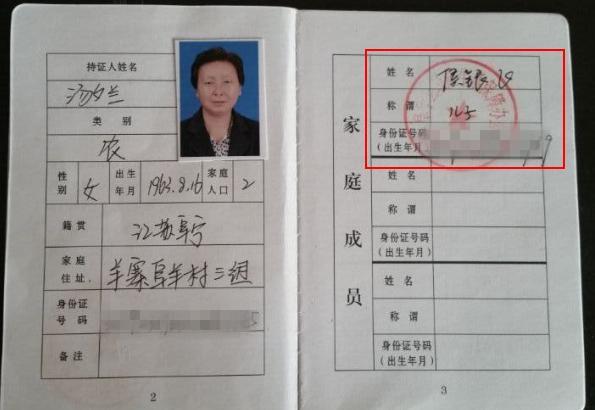 持证人姓名
汤夕兰
类 别
农
性别 女 出生年月 1963.8.16 家庭人口 2
籍贯 江苏阜宁
家庭住址 羊寨阜羊村三组
身份证号码
备注
2
家庭成员
姓 名
称 谓
身份证号码
(出生年月)
姓 名
称 谓
身份证号码
(出生年月)
姓 名
称 谓
身份证号码
(出生年月)
3